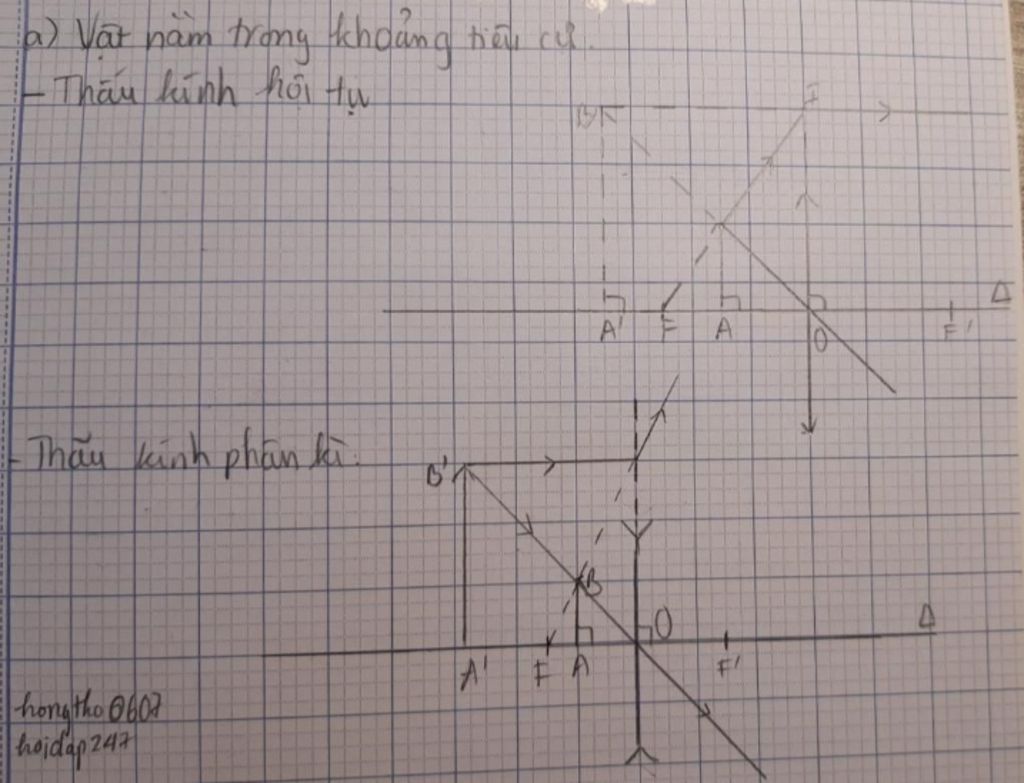 a) Vật nằm trong khoảng tiêu cự.
- Thấu kính hội tụ
B' I
Δ
A' F A O F'
- Thấu kính phân kì.
B'
B
O Δ
A' F A F'
hongtho0607
hoidap247